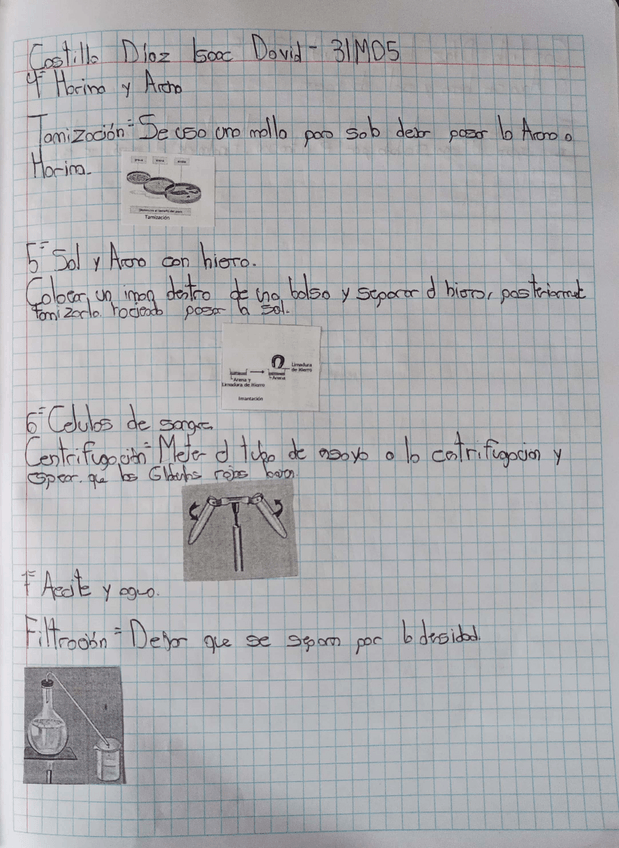 Castillo Díaz Isaac David - 3IM05
4= Harina y Arroz
Tamización = Se usa una malla para solo dejar pasar la Arroz o
Harina.
Tamización
5= Sal y Arroz con hierro.
Colocar un iman dentro de una bolsa y separar el hierro, posteriormet
tamizarlo haciendo pasar la sal.
Limadura
de Hierro
Arena y
Limadura de Hierro
Arena
Imantación
6= Celulas de sangre
Centrifugación = Meter el tubo de ensayo a la centrifugacion y
esperar que los Globulos rojos bajen
7= Aceite y agua.
Filtración = Dejar que se separn por la densidad.